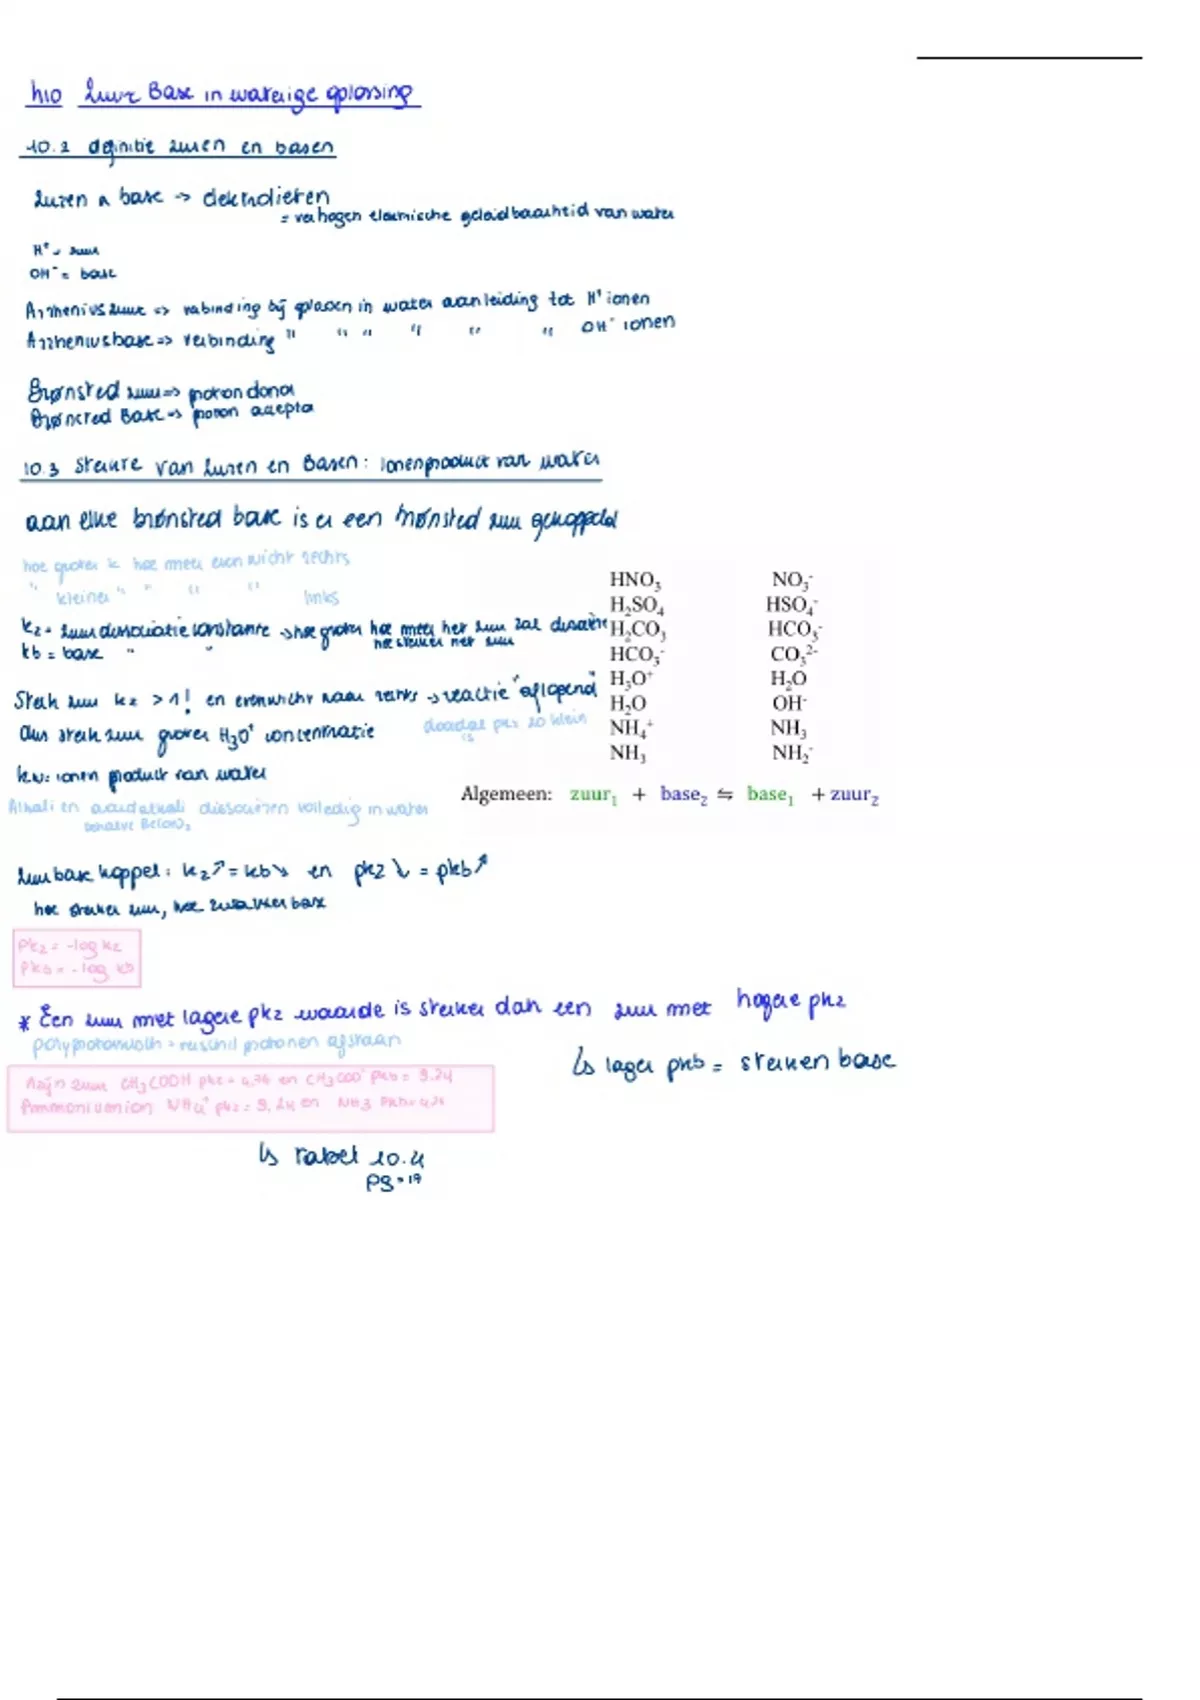 h10 Zuur Base in waterige oplossing
10.2 definitie zuren en basen
Zuren n base → elektrolieten
= verhogen elektrische geleidbaarheid van water
H⁺ = zuur
OH⁻ = base
Arrheniuszuur => verbinding bij oplossen in water aanleiding tot H⁺ ionen
Arrheniusbase => verbinding " " " " " " OH⁻ ionen
Brønsted zuur => proton donor
Brønsted Base → proton acceptor
10.3 Sterkte van Zuren en Basen: ionenproduct van water
aan elke brønsted base is er een brønsted zuur gekoppeld
hoe groter k hoe meer evenwicht rechts
" kleiner " " " " links
HNO₃ NO₃⁻
H₂SO₄ HSO₄⁻
kz = zuurdissociatie constante → hoe groter hoe meer het zuur zal dissociëren
hoe sterker het zuur
kb = base " "
H₂CO₃ HCO₃⁻
HCO₃⁻ CO₃²⁻
H₃O⁺ H₂O
Sterk zuur kz > 1! en evenwicht naar rechts → reactie "aflopend"
H₂O OH⁻
dus sterk zuur groter H₃O⁺ concentratie
doordat pkz zo klein is
NH₄⁺ NH₃
NH₃ NH₂⁻
kw: ionen product van water
Algemeen: zuur₁ + base₂ ⇋ base₁ + zuur₂
Alkali en aardalkali dissociëren volledig in water
behalve Be(OH)₂
Zuurbase koppel: kz↗ = kb↘ en pkz ↘ = pkb↗
hoe sterker zuur, hoe zwakker base
pkz = -log kz
pkb = -log kb
* Een zuur met lagere pkz waarde is sterker dan een zuur met hogere pkz
polyprotonisch = verschil protonen afstaan
↳ lager pkb = sterkere base
Azijn zuur CH₃COOH pkz = 4,76 en CH₃COO⁻ pkb = 9.24
Ammoniumion NH₄⁺ pkz = 9,24 en NH3 pkb = 4,76
↳ tabel 10.4
pg = 19